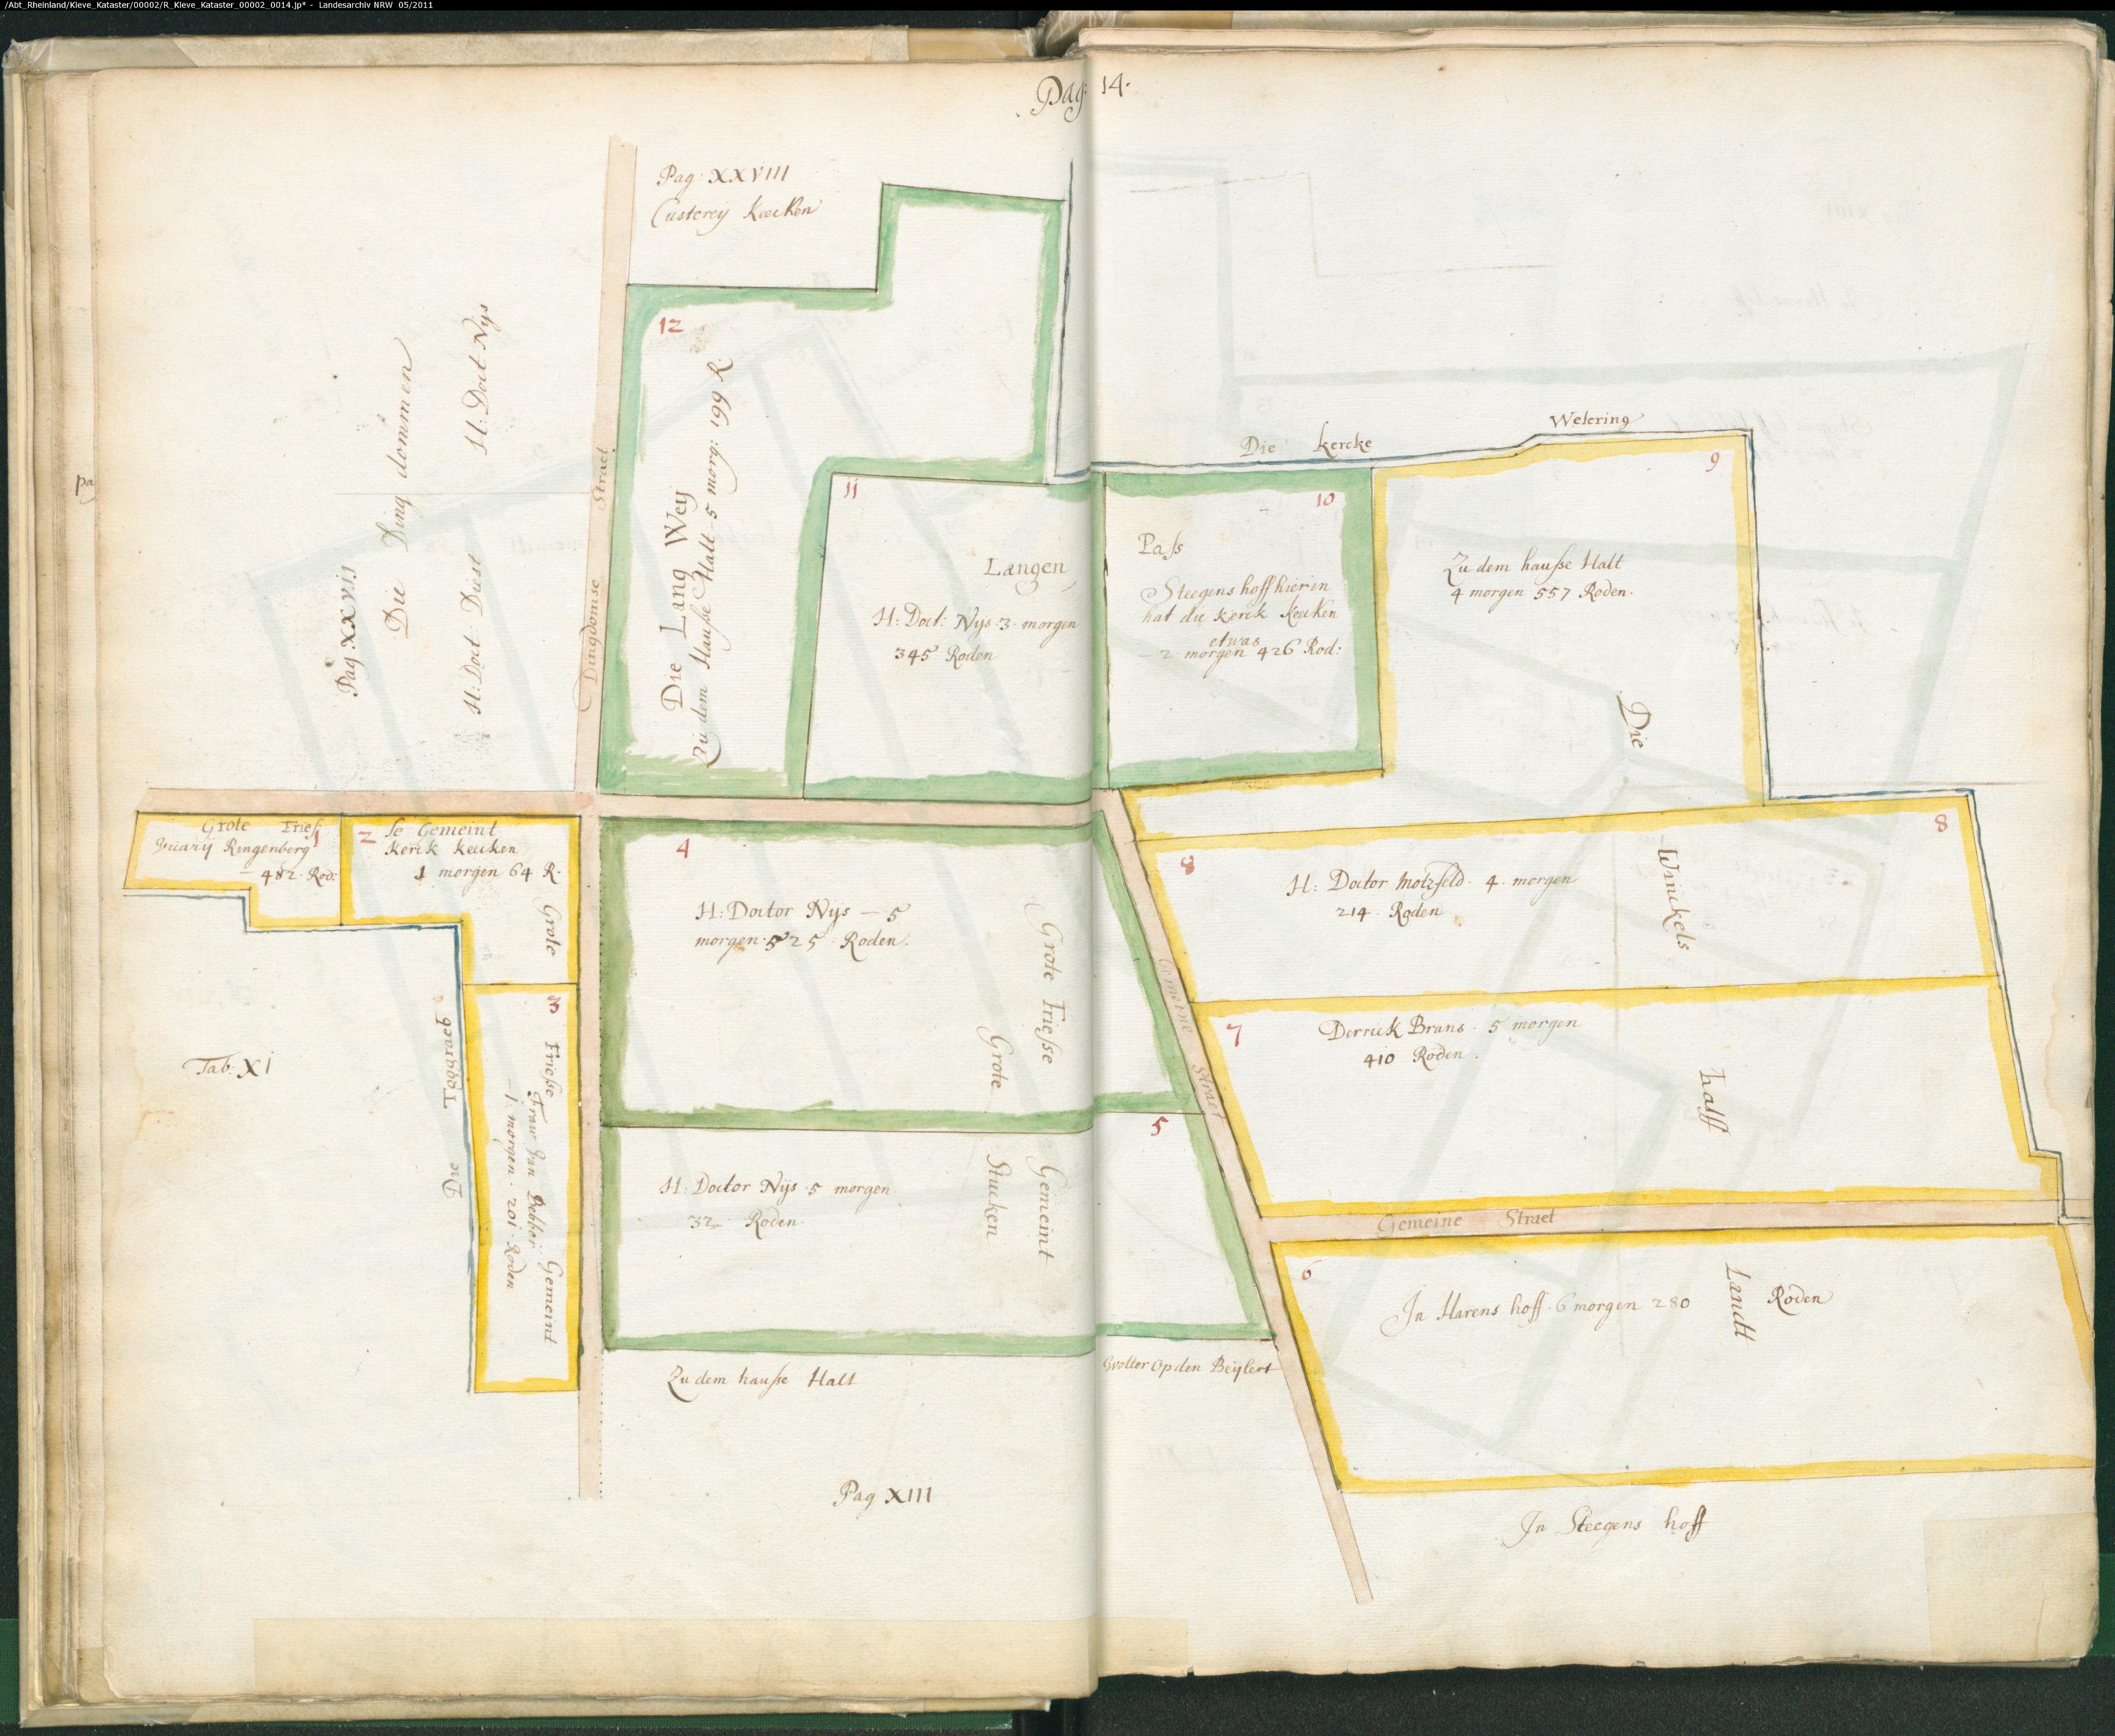 /Abt_Rheinland/Kleve_Kataster/00002/R_Kleve_Kataster_00002_0014.jp* - Landesarchiv NRW 05/2011
Pag: 14.
Pag XXVIII
Custerey Keeken
12
Die Lang Wey
Zu dem Hausse Halt 5 morg: 199 R:
Dingdomse Straet
H: Doct Nys
Die Ding dommen
H: Doct Diest
Pag XXVII
pa
11
Langen
H: Doct: Nys 3 morgen
345 Roden
10
Pass
Steegens hoff hierin
hat die Kerck Keeken
etwas
2 morgen 426 Rod:
Die kercke Wetering
9
Zu dem hausse Halt
4 morgen 557 Roden.
Die Winckels halff Landt
1
Grote Fries
Ringenberg
482 Rod:
2
se Gemeint
Kerck Keeken
1 morgen 64 R.
Grote Friesse Gemeint
3
Frauw Jan
1 morgen 201 Roden
Die Toggraeb
Tab: XI
4
H: Doctor Nys — 5
morgen 525 Roden.
Grote Friesse Gemeint
Grote Stucken
5
H: Doctor Nys 5 morgen
32 Roden
Gemeine Straet
8
8
H: Doctor Motzfeld 4 morgen
214 Roden
7
Derrick Brans 5 morgen
410 Roden.
Gemeine Straet
6
In Harens hoff 6 morgen 280 Roden
Zu dem hausse Halt
Wolter Op den Beylert
Pag XIII
In Steegens hoff